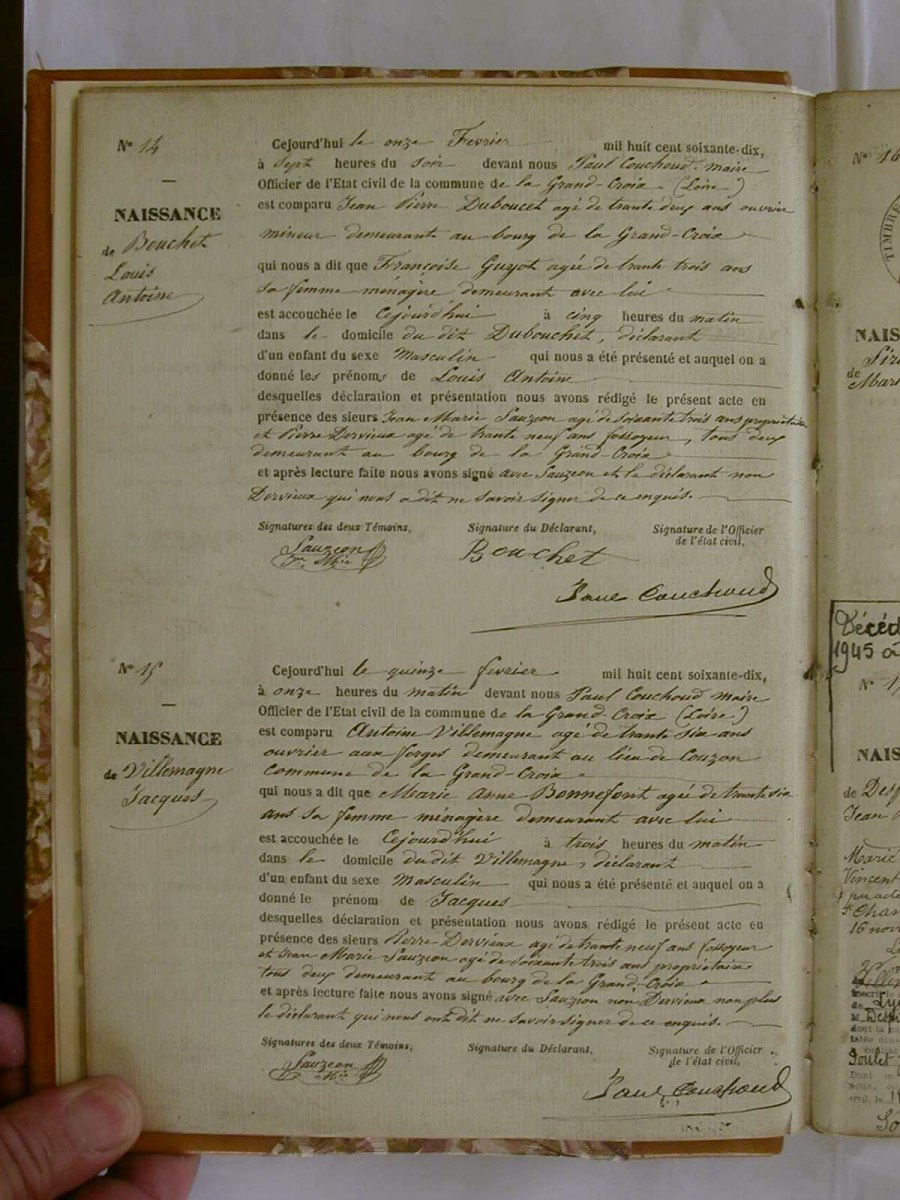 N° 14
NAISSANCE
de Bouchet
Louis
Antoine
Cejourd'hui le onze Fevrier mil huit cent soixante-dix,
à Sept heures du Soir devant nous Paul Couchoud, maire
Officier de l'Etat civil de la commune de la Grand-Croix (Loire)
est comparu Jean Pierre Duboucet agé de trante deux ans ouvrier
mineur demeurant au bourg de la Grand-Croix
qui nous a dit que Françoise Guyot agée de trante trois ans
Sa femme menagère demeurant avec lui
est accouchée le Cejourd'hui à cinq heures du matin
dans le domicile du dit Dubouchet, déclarant
d'un enfant du sexe Masculin qui nous a été présenté et auquel on a
donné les prénoms de Louis Antoine
desquelles déclaration et présentation nous avons rédigé le présent acte en
présence des sieurs Jean Marie Sauzeon agé de Soixante trois ans propriétaire
et Pierre Dervieux agé de trante neuf ans fossoyeur, tous deux
demeurant au bourg de la Grand-Croix
et après lecture faite nous avons signé avec Sauzeon et le déclarant non
Dervieux qui nous a dit ne Savoir Signer de ce enquis.
Signatures des deux Témoins, Signature du Déclarant, Signature de l'Officier
de l'état civil,
Sauzeon Bouchet
Jn Mie
Paul Couchoud
N° 15
NAISSANCE
de Villemagne
Jacques
Cejourd'hui le quinze fevrier mil huit cent soixante-dix,
à onze heures du matin devant nous Paul Couchoud maire
Officier de l'Etat civil de la commune de la Grand-Croix (Loire)
est comparu Antoine Villemagne agé de trante six ans
ouvrier aux forges demeurant au lieu de Couzon
Commune de la Grand-Croix
qui nous a dit que Marie Anne Bonnefont agée de trante six
ans Sa femme ménagère demeurant avec lui
est accouchée le Cejourd'hui à trois heures du matin
dans le domicile du dit Villemagne, déclarant
d'un enfant du sexe Masculin qui nous a été présenté et auquel on a
donné le prénom de Jacques
desquelles déclaration et présentation nous avons rédigé le présent acte en
présence des sieurs Pierre Dervieux agé de trante neuf ans fossoyeur
et Jean Marie Sauzeon agé de Soixante trois ans propriétaire
tous deux demeurant au bourg de la Grand-Croix
et après lecture faite nous avons signé avec Sauzeon non Dervieux non plus
le déclarant qui nous ont dit ne Savoir Signer de ce enquis.
Signatures des deux Témoins, Signature du Déclarant, Signature de l'Officier
de l'état civil,
Sauzeon
Mie
Paul Couchoud
N° 16
TIMBRE
NAIS
de
Mar
Décéd
1945 à
N°
NAIS
de Desp
Jean
Marie
Vincent
par acte
St Cham
16 nov